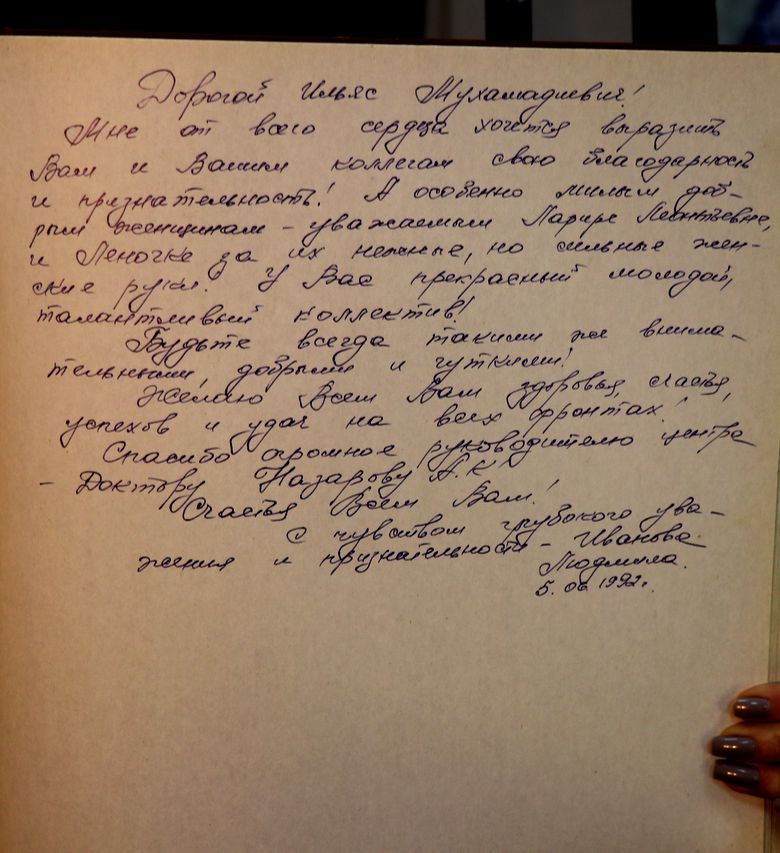 Дорогой Ильяс Мухамадиевич!
Мне от всего сердца хочется выразить
Вам и Вашим коллегам свою благодарность
и признательность! А особенно милым доб-
рым женщинам - уважаемым Ларире Леонтьевне,
и Леночке за их нежные, но сильные жен-
ские руки. У Вас прекрасный молодой,
талантливый коллектив!
Будьте всегда такими же внима-
тельными, добрыми и чуткими!
Желаю Всем Вам здоровья, счастья,
успехов и удач на всех фронтах!
Спасибо огромное руководителю центра
- Доктору Назарову А.К!
Счастья Всем Вам!
С чувством глубокого ува-
жения и признательности - Иванова
Людмила.
5.06 1992г.